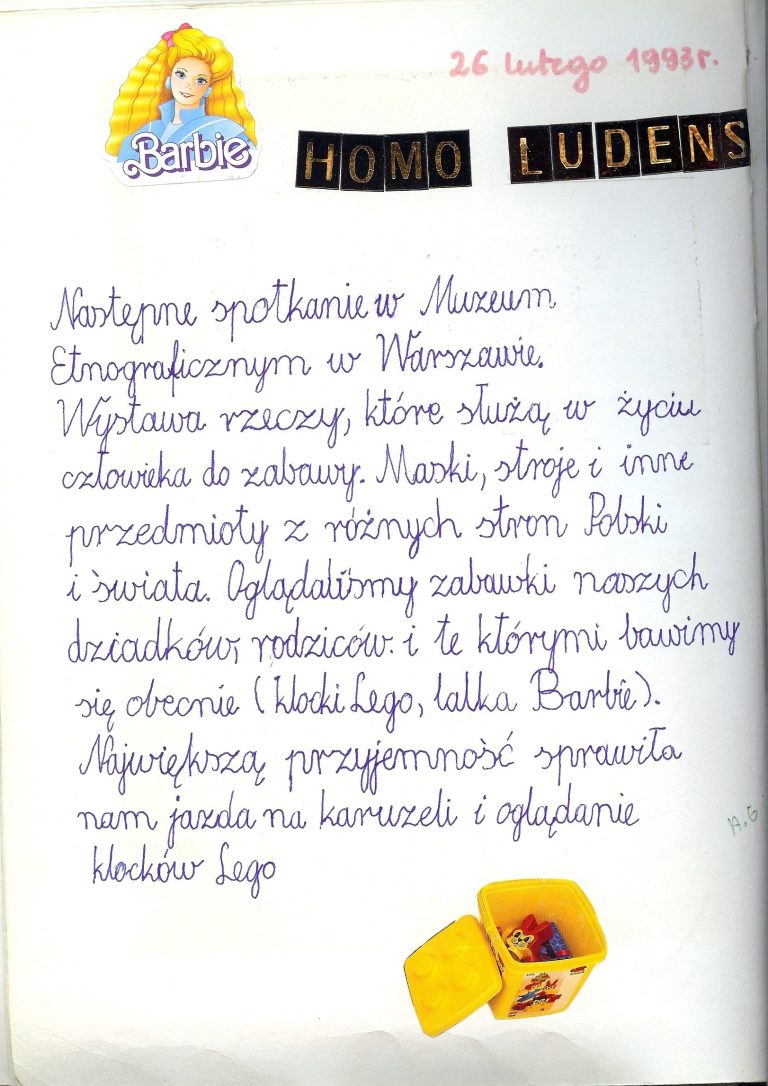 26 lutego 1993r.
Barbie
HOMO LUDENS
Następne spotkanie w Muzeum
Etnograficznym w Warszawie.
Wystawa rzeczy, które służą w życiu
człowieka do zabawy. Maski, stroje i inne
przedmioty z różnych stron Polski
i świata. Oglądaliśmy zabawki naszych
dziadków, rodziców. i te którymi bawimy
się obecnie (klocki Lego, lalka Barbie).
Największą przyjemność sprawiła
nam jazda na karuzeli i oglądanie
klocków Lego
A.G